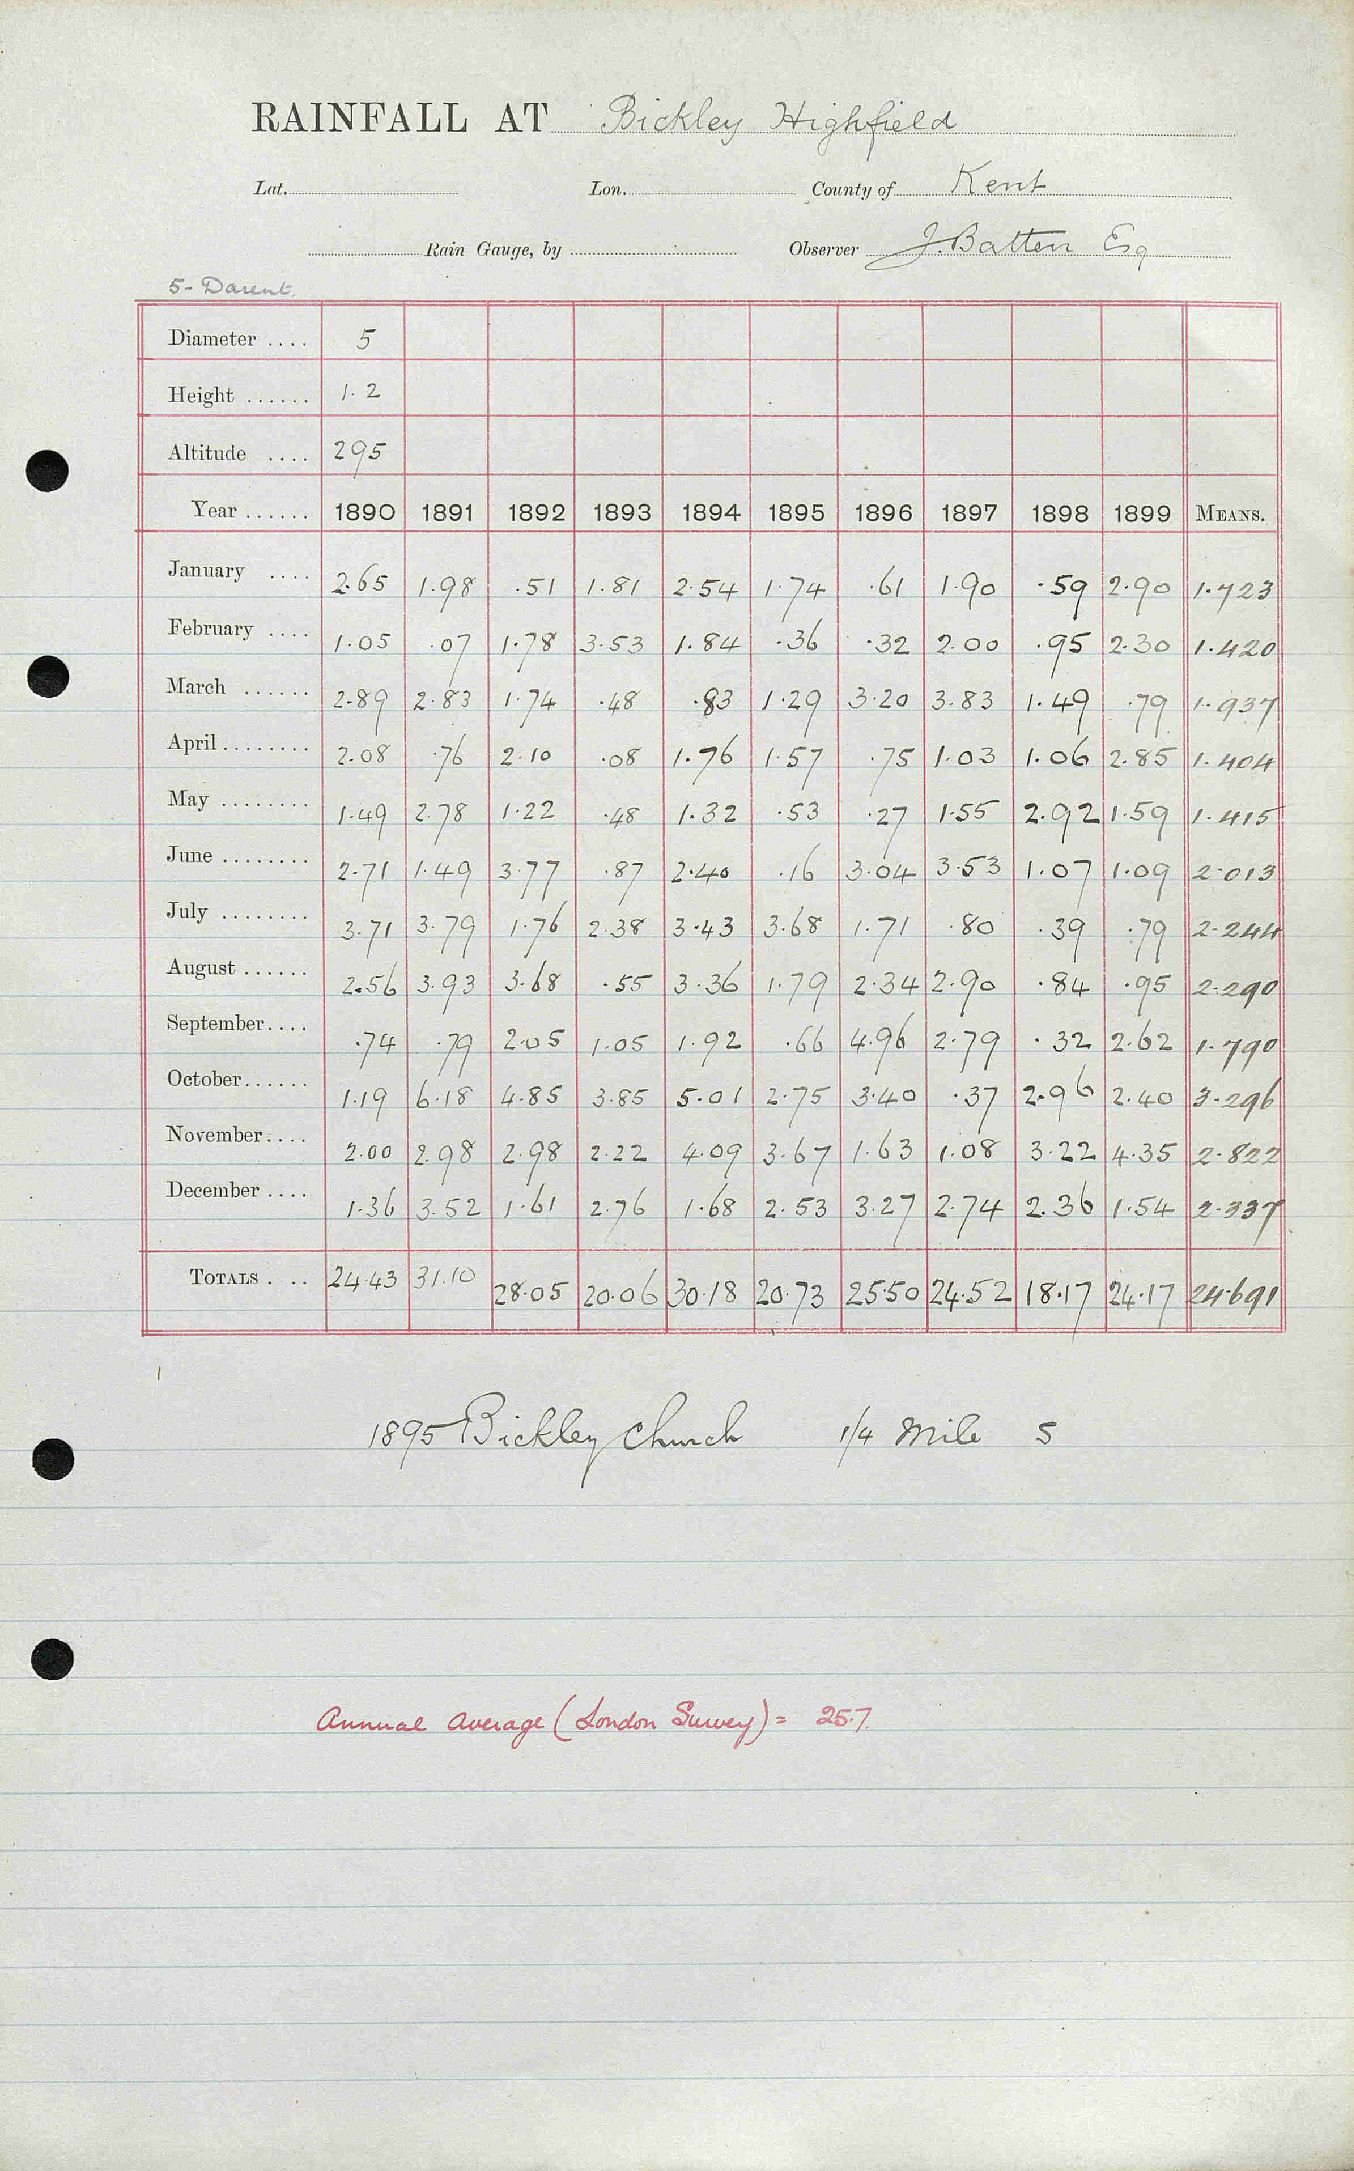 RAINFALL AT Bickley Highfield
Lat. Lon. County of Kent
Rain Gauge, by Observer J. Batten Esq
5 - Darent.
Diameter .... 5
Height ...... 1.2
Altitude .... 295
Year ...... 1890 1891 1892 1893 1894 1895 1896 1897 1898 1899 MEANS.
January .... 2.65 1.98 .51 1.81 2.54 1.74 .61 1.90 .59 2.90 1.723
February .... 1.05 .07 1.78 3.53 1.84 .36 .32 2.00 .95 2.30 1.420
March ...... 2.89 2.83 1.74 .48 .83 1.29 3.20 3.83 1.49 .79 1.937
April ........ 2.08 .76 2.10 .08 1.76 1.57 .75 1.03 1.06 2.85 1.404
May ........ 1.49 2.78 1.22 .48 1.32 .53 .27 1.55 2.92 1.59 1.415
June ........ 2.71 1.49 3.77 .87 2.40 .16 3.04 3.53 1.07 1.09 2.013
July ........ 3.71 3.79 1.76 2.38 3.43 3.68 1.71 .80 .39 .79 2.244
August ...... 2.56 3.93 3.68 .55 3.36 1.79 2.34 2.90 .84 .95 2.290
September.... .74 .79 2.05 1.05 1.92 .66 4.96 2.79 .32 2.62 1.790
October...... 1.19 6.18 4.85 3.85 5.01 2.75 3.40 .37 2.96 2.40 3.296
November.... 2.00 2.98 2.98 2.22 4.09 3.67 1.63 1.08 3.22 4.35 2.822
December .... 1.36 3.52 1.61 2.76 1.68 2.53 3.27 2.74 2.36 1.54 2.337
TOTALS . .. 24.43 31.10 28.05 20.06 30.18 20.73 25.50 24.52 18.17 24.17 24.691
1895 Bickley Church 1/4 mile S
Annual average (London Survey) = 25.7.